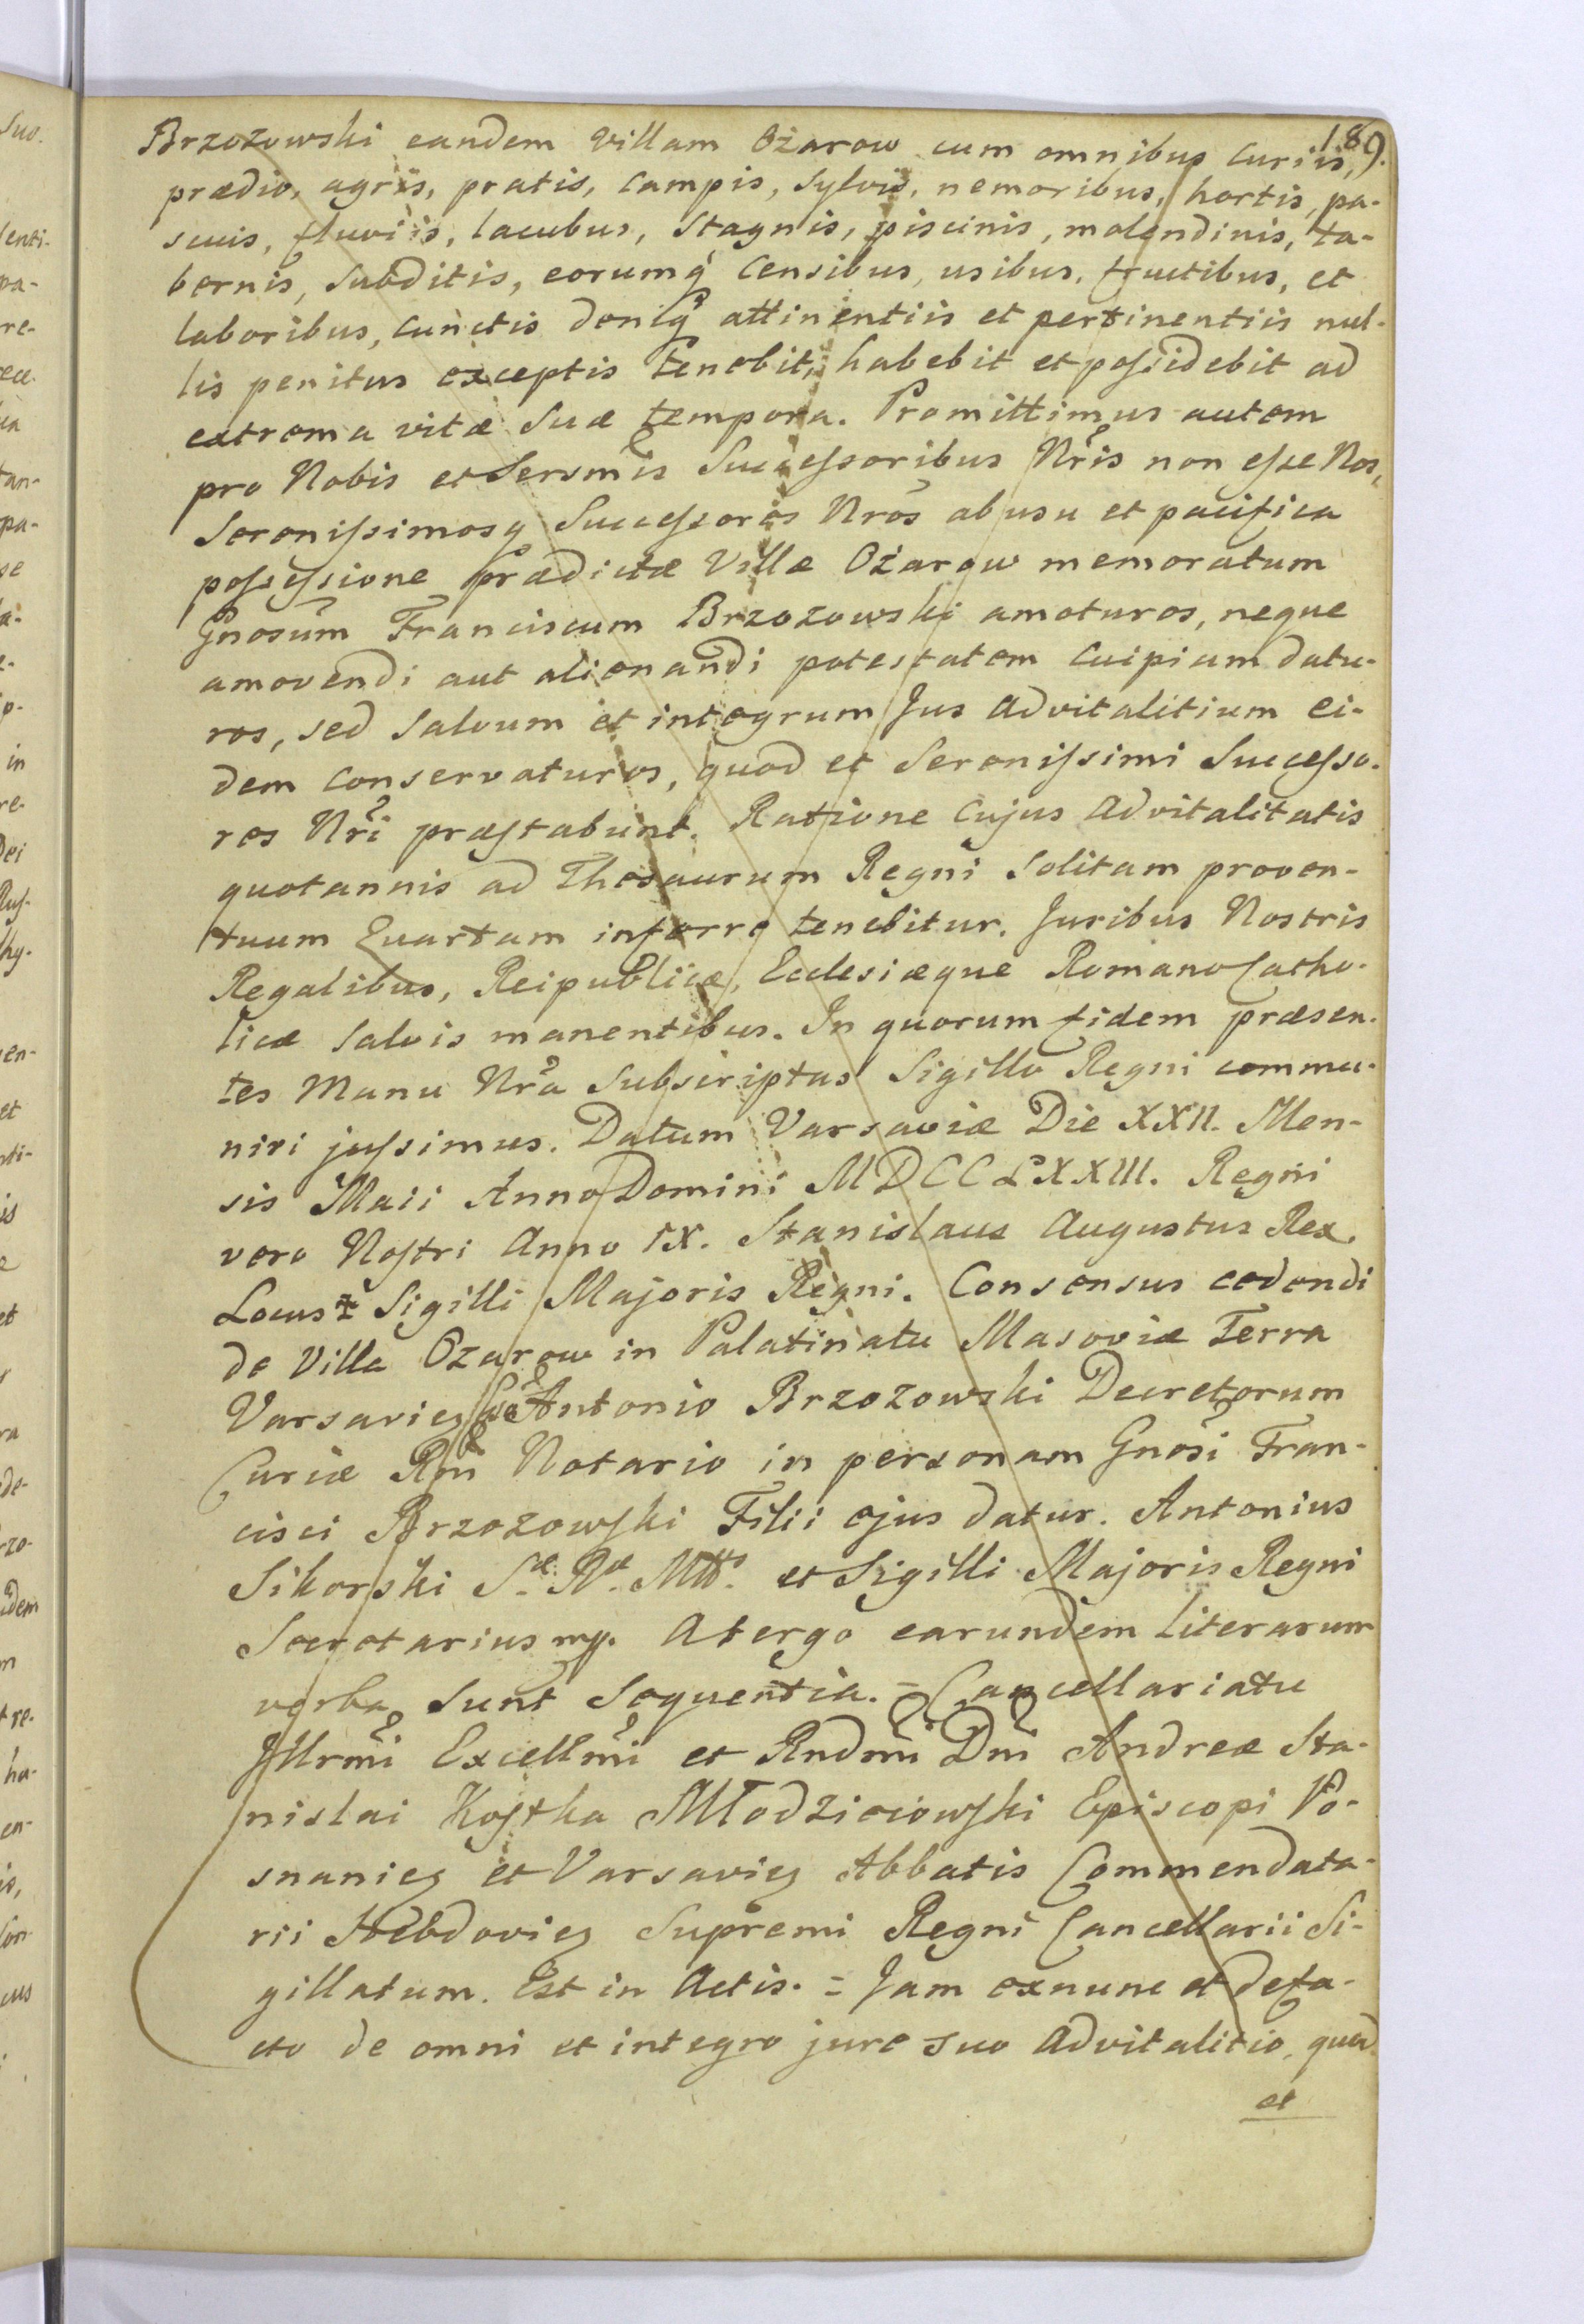 189.
Brzozowski eandem villam Ożarow cum omnibus curiis,
prædio, agris, pratis, campis, sylvis, nemoribus, hortis, pa-
scuis, fluviis, lacubus, stagnis, piscinis, molendinis, ta-
bernis, subditis, eorumq́ censibus, usibus, fructibus, et
laboribus, cunctis deniq́ attinentiis et pertinentiis nul-
lis penitus exceptis tenebit, habebit et poſsidebit ad
extrema vitæ suæ tempora. Promittimus autem
pro Nobis et Sersmis Succeſsoribus Nris non eſse Nos,
Sereniſsimosq Succeſsores Nros ab usu et pacifica
poſseſsione prædictæ Villæ Ożarow memoratum
Gnosum Franciscum Brzozowski amoturos, neque
amovendi aut alienandi poteſtatem cuipiam datu-
ros, sed salvum et integrum Jus advitalitium ei-
dem conservaturos, quod et Sereniſsimi Succeſso-
res Nri præſtabunt. Ratione cujus advitalitatis
quotannis ad Thesaurum Regni solitam proven-
tuum Quartam inferre tenebitur. Juribus Nostris
Regalibus, Reipublicæ, Ecclesiæque Romano Catho-
licæ salvis manentibus. In quorum fidem præsen-
tes Manu Nra subscriptas Sigillo Regni commu-
niri juſsimus. Datum Varsaviæ Die XXII. Men-
sis Maii Anno Domini MDCCLXXIII. Regni
vero Noſtri Anno IX. Stanislaus Augustus Rex.
Locus ✝ Sigilli Majoris Regni. Consensus cedendi
de Villa Ożarow in Palatinatu Masoviæ Terra
Varsavien Gso Antonio Brzozowski Decretorum
Curiæ Rni Notario in personam Gnosi Fran-
cisci Brzozowſki Filii ejus datur. Antonius
Sikorski S. Ræ. Mtts. et Sigilli Majoris Regni
Secretarius mp. A tergo earundem literarum
verba sunt sequentia. = Cancellariatu
Jllrmi Excellmi et Rndmi Dni Andreæ Sta-
nislai Koſtka Młodzieiowſki Episcopi Po-
snanien et Varsavien Abbatis Commendata-
rii Hebdovien Supremi Regni Cancellarii Si-
gillatum. Est in Actis. = Jam exnunc et defa-
cto de omni et integro jure suo advitalitio, quod
et